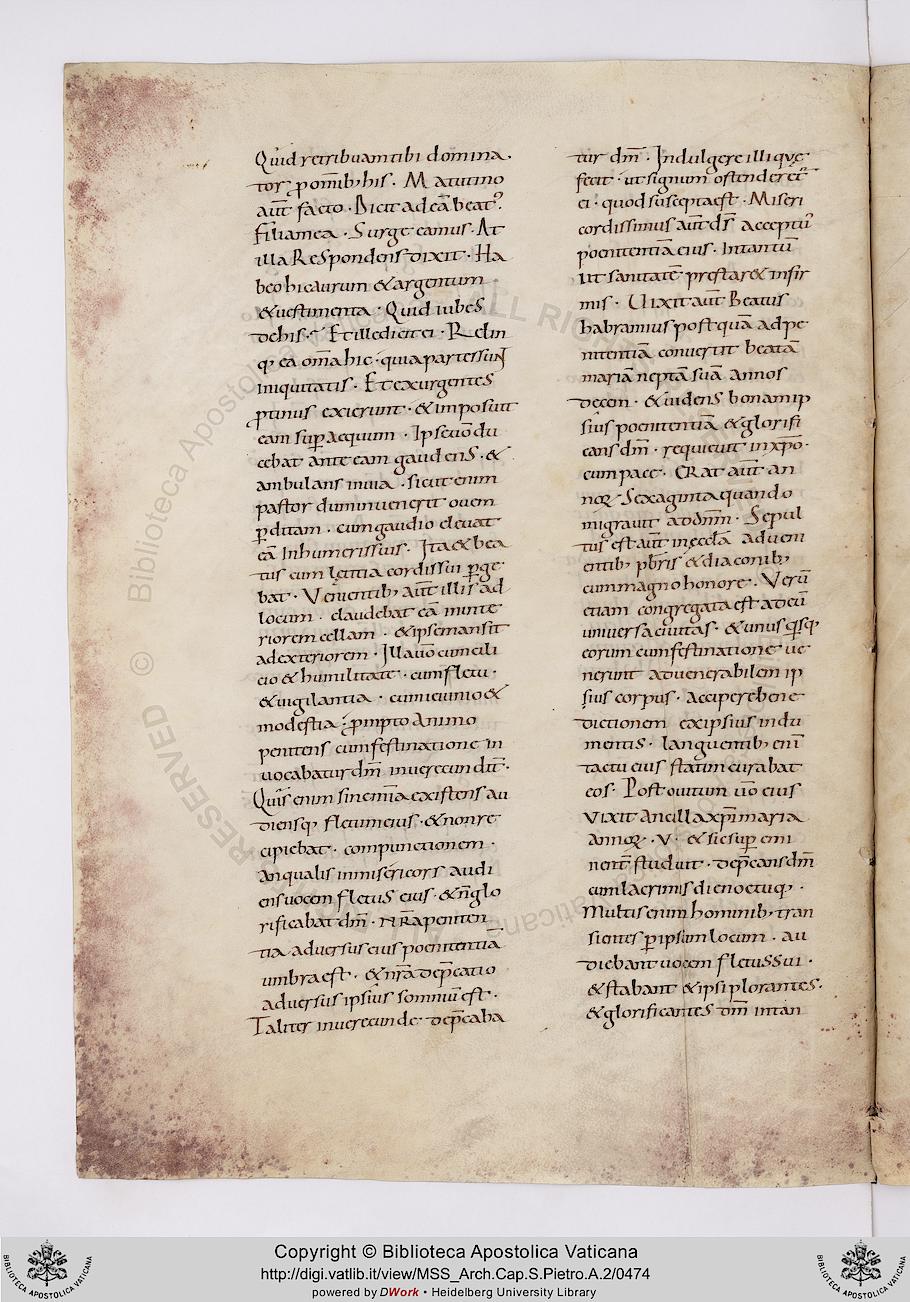 Quid retribuam tibi domina
tor, p om̅ib; his · Matutino
aut̅ facto · Dicit ad ea̅ beat᾽
Filia mea · Surge eamus · At
illa Respondens dixit · Ha
beo hic aurum & argentum
& uestimenta · Quid iubes
de his · Et ille dicit ei · Relin
q; ea om̅a hic · quia partes sunt
iniquitatis · Et exurgentes
ptinus exierunt · & imposuit
eam sup aequum · Ipse uo̅ du
cebat ante eam gaudens · &
ambulans in uia · sicut enim
pastor dum inuenerit ouem
pditam · cum gaudio eleuat
ea̅ In humeris suis · Ita & bea
tus cum letitia cordis sui pge
bat · Venientib; aut̅ illis ad
locum · claudebat ea̅ in inte
riorem cellam · & ipse mansit
ad exteriorem · Illa uo̅ cum cili
cio & humilitate · cum fletu ·
& uigilantia · cum ieiunio &
modestia · prompto Animo
penitens cum festinatione in
uocabatur dm̅ inuerecundi̅t ·
Quis enim sine om̅ia existens au
diensq; fletum eius · & non re
cipiebat · compunctionem ·
an qualis inmisericors audi
ens uocem fletus eius · & n̅ glo
rificabat dm̅ · NR̅A peniten
tia aduersus eius poenitentia̅
umbra est · & nr̅a dep̅catio
aduersus ipsius somniu̅ est ·
Taliter inuerecunde dep̅caba
tur dm̅ · Indulgere illi que
fecit · ut signum ostenderet᾽
ei · quod suscepta est · Miseri
cordissimus aut̅ ds̅ acceptu᾽
poenitentia̅ eius · Intantu̅
ut sanitate̅ prestar& infir
mis · Uixit aut̅ Beatus
habramius postqua̅ ad pe
nitentia̅ conuertit beata̅
maria̅ nepta̅ sua̅ annos
decem · & uidens bonam ip
sius poenitentia̅ & glorifi
cans dm̅ · requieuit in xp̅o ·
cum pace · ERat aut̅ an
noꝝ Sexaginta quando
migrauit ad dn̅m · Sepul
tus est aut̅ in eccl̅a adueni
entib; pbr̅is & diaconib;
cum magno honore · Veru̅
etiam congregata est ad eu̅
uniuersa ciuitas · & unus q̇sq;
eorum cum festinatione ue
nerunt ad uenerabilem ip
sius corpus · accipere bene
dictionem ex ipsius indu
mentis · languentib; eni̅
tactu eius statim curabat
eos · Post ouitum uo̅ eius
vixit Ancilla xp̅i maria
Annoꝝ · V · & sic sup emi
nent̅ studuit · dep̅cans dm̅
cum lacrimis die noctuq; ·
Multis enim hominib; tran
sientes p ipsum locum · au
diebant uocem fletus sui ·
& stabant & ipsi plorantes ·
& glorificantes dm̅ in tan
© Biblioteca Apostolica Vaticana
ALL RIGHTS RESERVED
Copyright © Biblioteca Apostolica Vaticana
http://digi.vatlib.it/view/MSS_Arch.Cap.S.Pietro.A.2/0474
powered by DWork • Heidelberg University Library
BIBLIOTECA APOSTOLICA VATICANA
BIBLIOTECA APOSTOLICA VATICANA